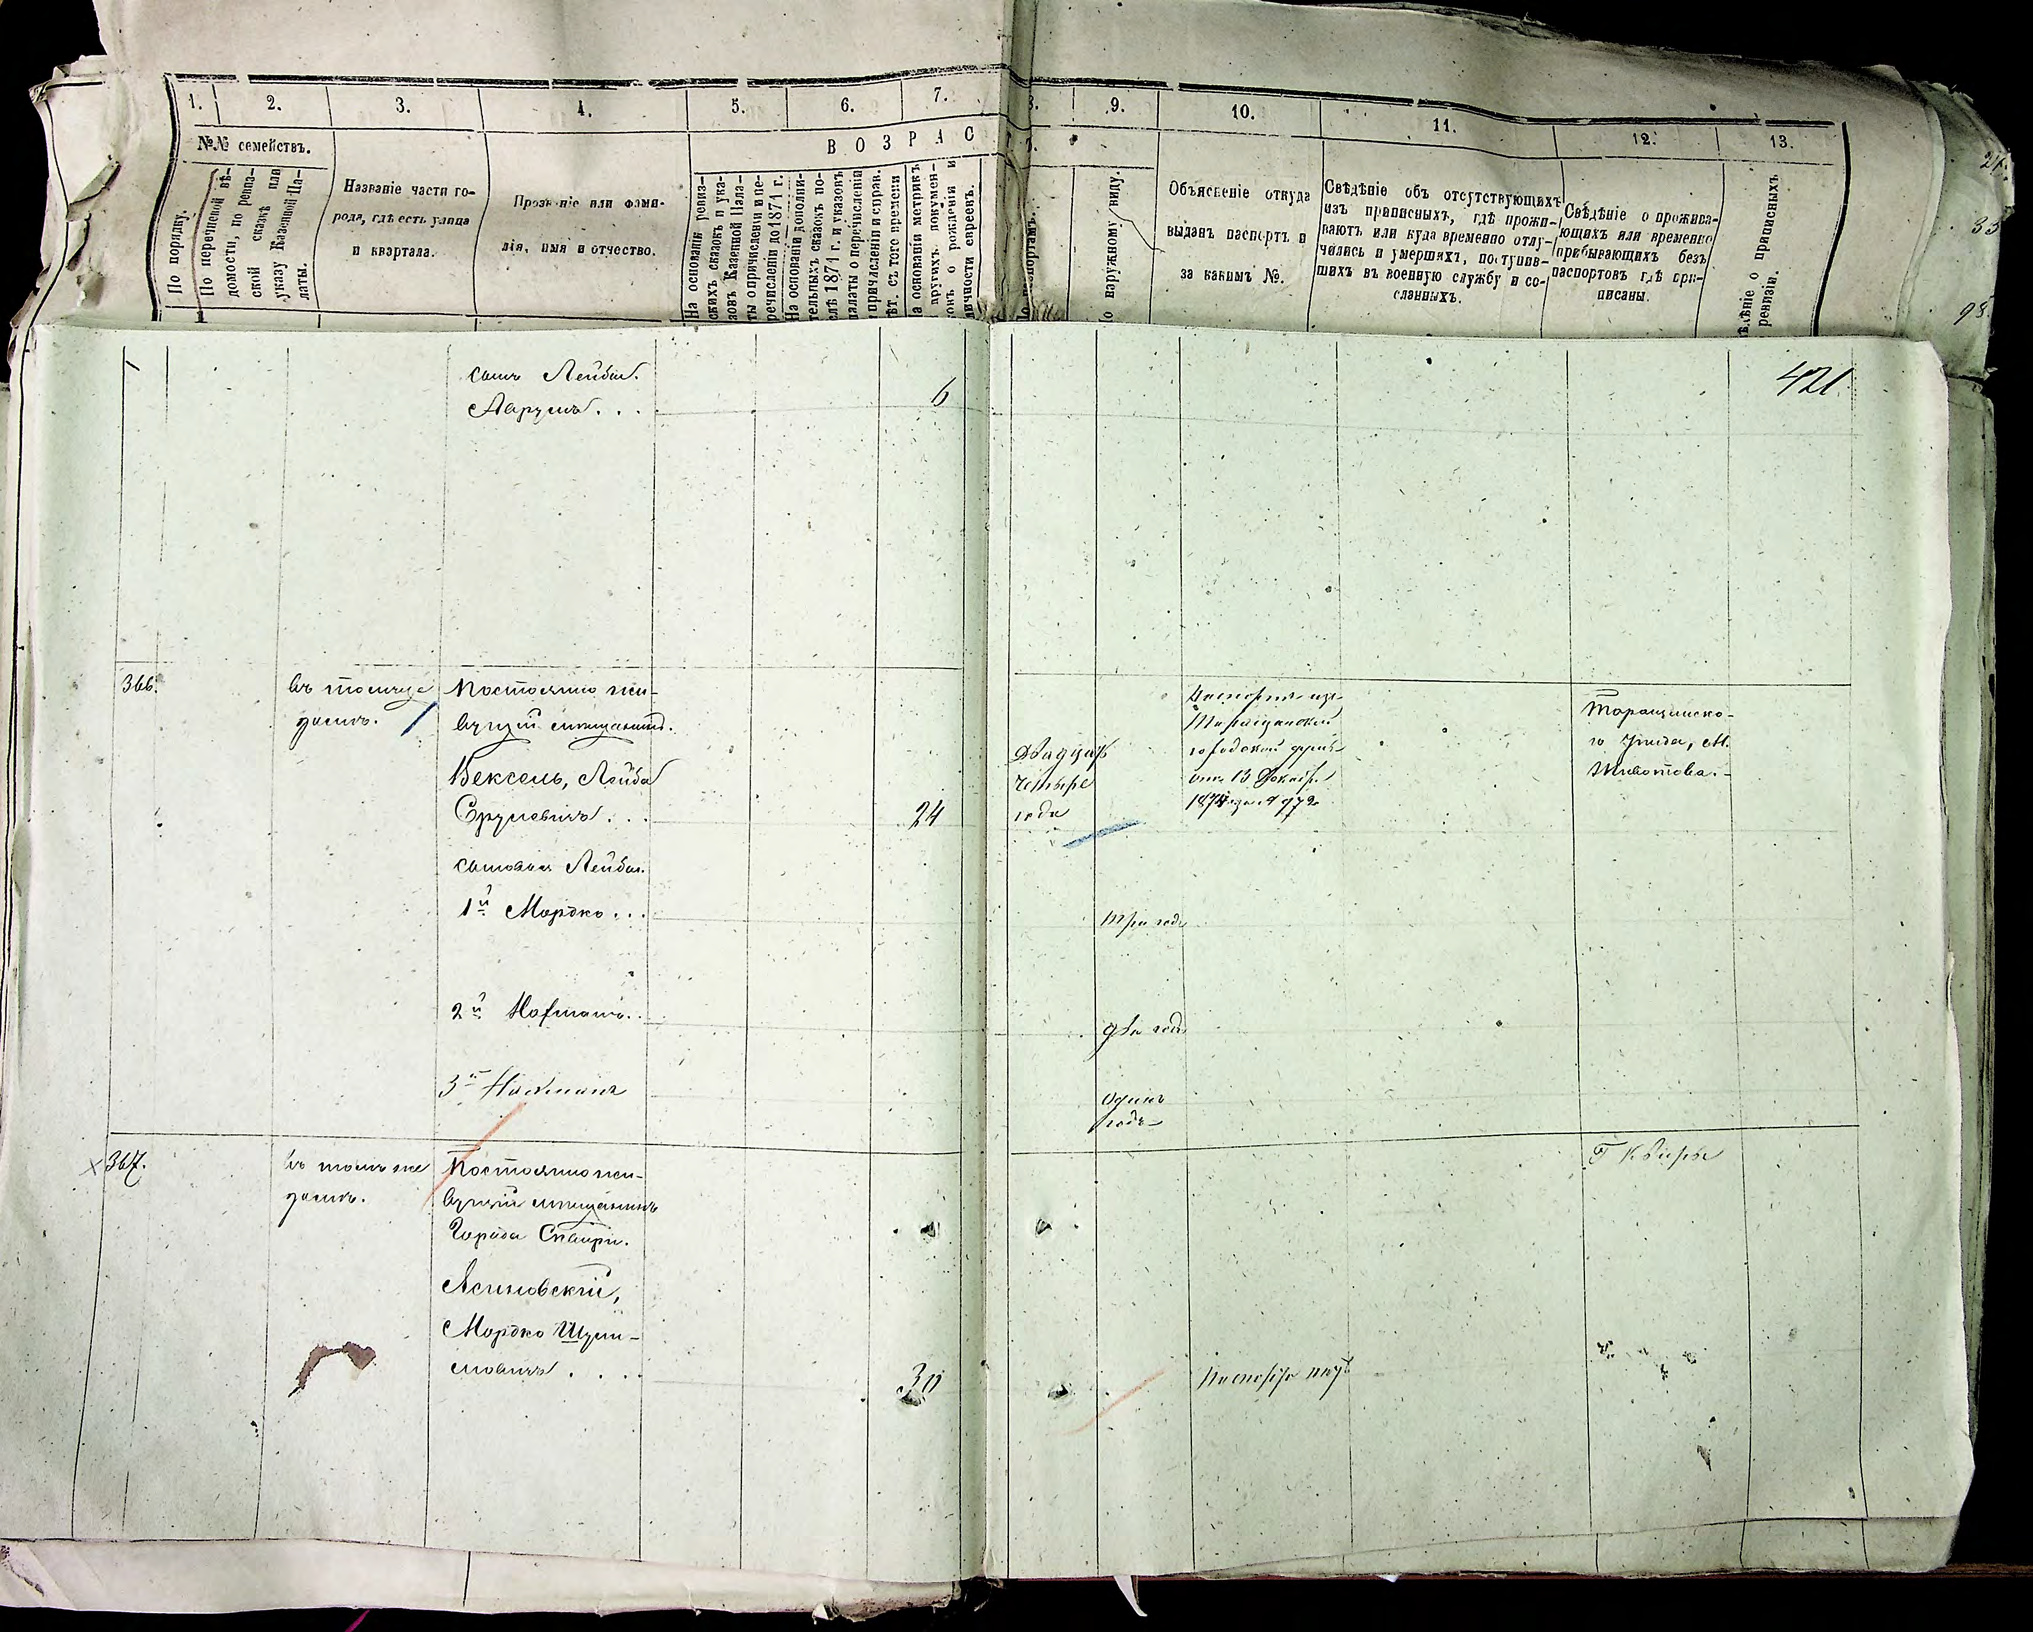 1.
2.
3.
4.
5.
6.
7.
8.
9.
10.
11.
12.
13.
№№ семействъ.
ВОЗРАС
По порядку.
По перечневой вѣ-
домости, по ревиз-
ской сказкѣ или
указу Казенной Па-
латы.
Названіе части го-
рода, гдѣ есть улица
и квартала.
Прозваніе или фами-
лія, имя и отчество.
На основаніи ревиз-
скихъ сказокъ и ука-
зовъ Казенной Пала-
ты о причисленіи и пе-
речисленіи до 1871 г.
На основаніи дополни-
тельныхъ сказокъ по-
слѣ 1871 г. и указовъ
палаты о перечисленіи
и причисленіи справ.
лѣт. съ того времени
на основаніи метрикъ
и другихъ докумен-
товъ о рожденіи и
личности евреекъ.
По наружному виду.
Объясненіе откуда
выданъ паспортъ и
за какимъ №.
Свѣдѣніе объ отсутствующихъ
изъ приписныхъ, гдѣ прожи-
ваютъ или куда временно отлу-
чились и умершихъ, поступив-
шихъ въ военную службу и со-
сланныхъ.
Свѣдѣніе о прожива-
ющихъ или временно
прибывающихъ безъ
паспортовъ гдѣ при-
писаны.
Свѣдѣніе о приписныхъ
ревизіи.
421
сынъ Лейбы.
Аврумъ . . . 6
366.
въ томъ же
домѣ.
Постоянно жи-
вущій мѣщанинъ.
Вексель, Лейба
Сруловичъ . . . 24
Двадцать
четыре
года
Паспортъ изъ
Таращанской
городской думы
отъ 13 Декабр.
1874 за № 972
Таращанска-
го уѣзда, М.
Животова.
сыновья Лейбы.
1й Мордко . . . три года
2й Нафтанъ . . два года
3й Нахманъ
Одинъ
годъ
367.
въ томъ же
домѣ.
Постоянно жи-
вущій мѣщанинъ
Города Сквиры.
Г Сквиры
Асиновскій,
Мордко Шум-
ловичъ . . . . 30
Паспорта нѣтъ